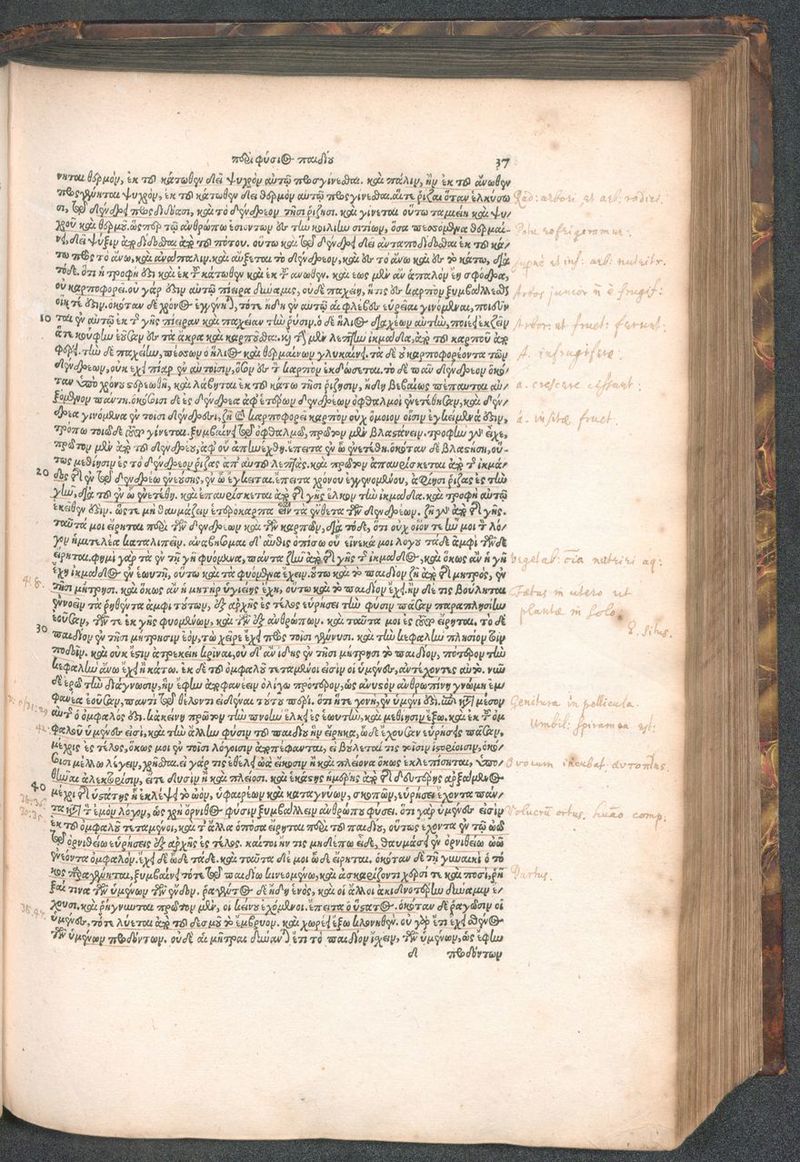 περὶ φύσιος παιδίου 37
νηται θερμὸν, ἐκ τοῦ κάτωθεν δεῖ ψυχρὸν αὐτῷ προσγίνεσθαι. καὶ πάλιν, ἢν ἐκ τοῦ ἄνωθεν
προσγένηται ψυχρὸν, ἐκ τοῦ κάτωθεν δεῖ θερμὸν αὐτῷ προσγίνεσθαι. αἵτε ῥίζαι ὅταν ἑλκύσω
σι, τῷ δένδρει προσδιδόασι, καὶ τὸ δένδρεον τῇσι ῥίζῃσι. καὶ γίνεται οὕτω ταμιεῖη καὶ ψυ/
χροῦ καὶ θερμοῦ. ὥσπερ τῷ ἀνθρώπῳ ἐσιόντων ἐν τὴν κοιλίην σιτίων, ὅσα πεσσόμενα θερμαί/
νει, δεῖ ψύξιν ἀποδίδοσθαι ἀπὸ τοῦ πότου. οὕτω καὶ τῷ δένδρει δεῖ ἀνταποδίδοσθαι ἐκ τοῦ κά/
τω πρὸς τὸ ἄνω, καὶ ἀνάπαλιν. καὶ αὔξεται τὸ δένδρεον, καὶ ἐν τὸ ἄνω καὶ ἐν τὸ κάτω, διὰ
τόδε. ὅτι ἡ τροφὴ ἐστι καὶ ἐκ τοῦ κάτωθεν καὶ ἐκ τοῦ ἄνωθεν. καὶ ἕως μὲν ἂν ἁπαλὸν ἔῃ σφόδρα,
οὐ καρποφορέει. οὐ γάρ ἐστιν αὐτῷ πίειρα δύναμις, οὐδὲ παχείη, ἥτις ἐν καρπὸν ξυμβάλλεσθαι
οἵη τέ ἐστιν. ὁκόταν δὲ χρόνος ἐγγένηται, τότε ἤδη ἐν αὐτῷ αἱ φλέβες εὐρεῖαι γινόμεναι, ποιεῦν
10 ται ἐν αὐτῷ ἐκ τῆς γῆς πίειραν καὶ παχείαν τὴν ῥύσιν. ὁ δὲ ἥλιος διαχέων αὐτὴν, ποιέει ἐκζεῖν
ἅτε κούφην ἐοῦσαν ἐν τὰ ἄκρα καὶ καρποῦσθαι. καὶ τὴν μὲν λεπτὴν ἰκμάδα, ἀπὸ τοῦ καρποῦ ἀπο
φέρει. τὴν δὲ παχείην, πέσσων ὁ ἥλιος καὶ θερμαίνων γλυκαίνει. τὰ δὲ οὐ καρποφορέοντα τῶν
δένδρεων, οὐκ ἔχει πῖαρ ἐν αὐτοῖσιν, ὅπερ ἐν τὸν καρπὸν ἐκδώσεται. τὸ δὲ πᾶν δένδρεον ὁκό/
ταν ὑπὸ χρόνου στερεωθῇ, καὶ λάβηται ἐκ τοῦ κάτω τῇσι ῥίζῃσιν, ἤδη βεβαίως πέπαυται αὐ/
ξόμενον πάντῃ. ὁκόσοισι δὲ ἐς δένδρεα ἀφ' ἑτέρων δένδρεων ὀφθαλμοὶ ἐνετέθησαν, καὶ δέν/
δρεα γινόμενα ἐν τοῖσι δένδρεσι, ζῇ καὶ καρποφορεῖ καρπὸν οὐχ ὅμοιον οἷσιν ἐγκείμενά ἐστιν,
τρόπῳ τοιῷδε τοῦτο γίνεται. ξυμβαίνει τῷ ὀφθαλμῷ, πρῶτον μὲν βλαστάνειν. τροφὴν γὰρ εἶχε,
πρῶτον μὲν ἀπὸ τοῦ δένδρεου, ἀφ' οὗ ἀπηνέχθη. ἔπειτα ἐν ᾧ ἐνετέθη. ὁκόταν δὲ βλαστήσῃ, οὕ/
τως μεθίησιν ἐς τὸ δένδρεον ῥίζας ἀπ' αὐτοῦ λεπτάς. καὶ πρῶτον ἐπαυρίσκεται ἀπὸ τῆς ἰκμά/
20 δος τῆς ἐν τῷ δένδρεῳ ἐνεούσης, ἐν ᾧ ἔγκειται. ἔπειτα χρόνου ἐγγενομένου, ἀφίησι ῥίζας ἐς τὴν
γῆν, διὰ τοῦ ἐν ᾧ ἐνετέθη. καὶ ἐπαυρίσκεται ἀπὸ τῆς γῆς ἕλκον τὴν ἰκμάδα. καὶ τροφὴ αὐτῷ
ἐκεῖθέν ἐστιν. ὥστε μὴ θαυμάζειν ἑτερόκαρπα εἶναι τὰ ἔνθετα τῶν δένδρεων. ζῇ γὰρ ἀπὸ τῆς γῆς.
ταῦτά μοι εἴρηται περὶ τῶν δένδρεων καὶ τῶν καρπῶν, διὰ τόδε, ὅτι οὐχ οἷόν τε ἦν μοι τὸν λό/
γον ἡμιτελέα καταλιπεῖν. ἀναβήσομαι δ' αὖθις ὀπίσω οὗ εἵνεκά μοι λόγου τάδε ἀμφὶ τῶν δὲ
εἴρηται. φημὶ γὰρ τὰ ἐν τῇ γῇ φυόμενα, πάντα ζῆν ἀπὸ τῆς γῆς τῆς ἰκμάδος, καὶ ὅκως ἂν ἡ γῆ
ἔχῃ ἰκμάδος ἐν ἑωυτῇ, οὕτω καὶ τὰ φυόμενα ἔχειν. οὕτω καὶ τὸ παιδίον ζῇ ἀπὸ τῆς μητρὸς, ἐν
τῇσι μήτρῃσι. καὶ ὅκως ἂν ἡ μήτηρ ὑγιείης ἔχῃ, οὕτω καὶ τὸ παιδίον ἔχει. ἢν δέ τις βούληται
ἐννοεῖν τὰ ῥηθέντα ἀμφὶ τούτων, ἐξ ἀρχῆς ἐς τέλος εὑρήσει τὴν φύσιν πᾶσαν παραπλησίην
ἐοῦσαν, τῶν τε ἐκ γῆς φυομένων, καὶ τῶν ἐξ ἀνθρώπων. καὶ ταῦτά μοι ἐς τοῦτο εἴρηται. τὸ δὲ
30 παιδίον ἐν τῇσι μήτρῃσιν ἐὸν, τὼ χεῖρε ἔχει πρὸς τοῖσι γένυσι. καὶ τὴν κεφαλὴν πλησίον τοῖν
ποδοῖν. καὶ οὐκ ἔστιν ἀτρεκείῃ κρῖναι, οὐδ' ἂν ἴδῃς ἐν τῇσι μήτρῃσι τὸ παιδίον, πότερον τὴν
κεφαλὴν ἄνω ἔχει ἢ κάτω. ἐκ δὲ τοῦ ὀμφαλοῦ τεταμένοι εἰσὶν οἱ ὑμένες, ἀντέχοντες αὐτό. νῦν
δὲ ἐρῶ τὴν διάγνωσιν, ἣν ἔφην ἀποφανέειν ὀλίγῳ πρότερον, ὡς ἀνυστὸν ἀνθρωπίνῃ γνώμῃ ἐμ
φανέα ἐοῦσαν, παντὶ τῷ θέλοντι εἰδέναι τούτου πέρι. ὅτι ἥτε γονὴ, ἐν ὑμένι ἐστὶ. καὶ κατὰ μέσον
αὐτῆς ὁ ὀμφαλός ἐστι. κἀκείνη πρῶτον τὴν πνοὴν ἕλκει ἐς ἑωυτὴν, καὶ μεθίησιν ἔξω. καὶ ἐκ τοῦ ὀμ
φαλοῦ ὑμένες εἰσὶ. καὶ τὴν ἄλλην φύσιν τοῦ παιδίου ἣν εἴρηκα, ὧδε ἔχουσαν εὑρήσεις πᾶσαν,
μέχρις ἐς τέλος, ὅκως μοι ἐν τοῖσι λόγοισιν ἀποπέφανται, εἰ βούλεταί τις τοῖσιν ἱστορίοισιν, ὁκό/
σοισι μέλλω λέγειν, χρῆσθαι. εἰ γάρ τις ἐθέλει ὠὰ εἴκοσιν ἢ καὶ πλείονα ὅκως ἐκλεπίσηται, ὑπο/
θεῖναι ἀλεκτορίσιν, εἴτε δυσὶν ἢ καὶ πλείοσι. καὶ ἑκάστης ἡμέρης ἀπὸ τῆς δευτέρης ἀρξάμενος
40 μέχρι τῆς ὑστάτης ᾗ ἐκλέψει τὸ ὠὸν, ὑφαιρέων καὶ καταγνύων, σκοπῶν, εὑρήσει ἔχοντα πάν/
τα κατὰ τὸν ἐμὸν λόγον, ὡς χρὴ ὄρνιθος φύσιν ξυμβάλλειν ἀνθρώπου φύσει. ὅτι γὰρ ὑμένες εἰσὶν
ἐκ τοῦ ὀμφαλοῦ τεταμένοι, καὶ τἄλλα ὁπόσα εἴρηται περὶ τοῦ παιδίου, οὕτως ἔχοντα ἐν τῷ ὠῷ
τῷ ὀρνιθείῳ εὑρήσεις ἐξ ἀρχῆς ἐς τέλος. καίτοι ἤν τις μηδέπω εἶδε, θαυμάσει ἐν ὀρνιθείῳ ὠῷ
ἐνεόντα ὀμφαλόν. ἔχει δὲ ὧδε τάδε. καὶ ταῦτα δέ μοι ὧδε εἴρηται. ὁκόταν δὲ τῇ γυναικὶ ὁ τό
κος παραγένηται, ξυμβαίνει τότε τῷ παιδίῳ κινεομένῳ, καὶ ἀσκαρίζοντι χερσί τε καὶ ποσὶ, ῥῆ
ξαί τινα τῶν ὑμένων τῶν ἔνδον. ῥαγέντος δὲ ἤδη ἑνὸς, καὶ οἱ ἄλλοι ἀκιδνοτέρην δύναμιν ἔ/
χουσι. καὶ ῥήγνυνται πρῶτον μὲν, οἱ κείνου ἐχόμενοι. ἔπειτα ὁ ὕστατος. ὁκόταν δὲ ῥαγῶσιν οἱ
ὑμένες, τότε λύεται ἀπὸ τοῦ δεσμοῦ τὸ ἔμβρυον. καὶ χωρέει ἔξω κλονηθέν. οὐ γὰρ ἔτι ἔχει σθένος
τῶν ὑμένων προδόντων. οὐδὲ αἱ μῆτραι δύνανται ἔτι τὸ παιδίον ἴσχειν, τῶν ὑμένων, ὡς ἔφην
δ προδόντων
Rad: arbori et arb: radici.
Potu refrigeramur.
supnè et inf: arb: nutritr.
Arbos junior n̄ ē frugif:
Arbores ut fruct: ferunt.
A. infrugiferæ.
a. crescere cessant.
a. insitæ fruct.
Vegetab: oīa nutriri aq:
Fœtus in utero ut
plantæ in solo.
E. situs.
Genitura in pellicula.
Umbil: spiramen est.
Ovorum incubat.
Volucrū ortus. humāo comp:
Partus.